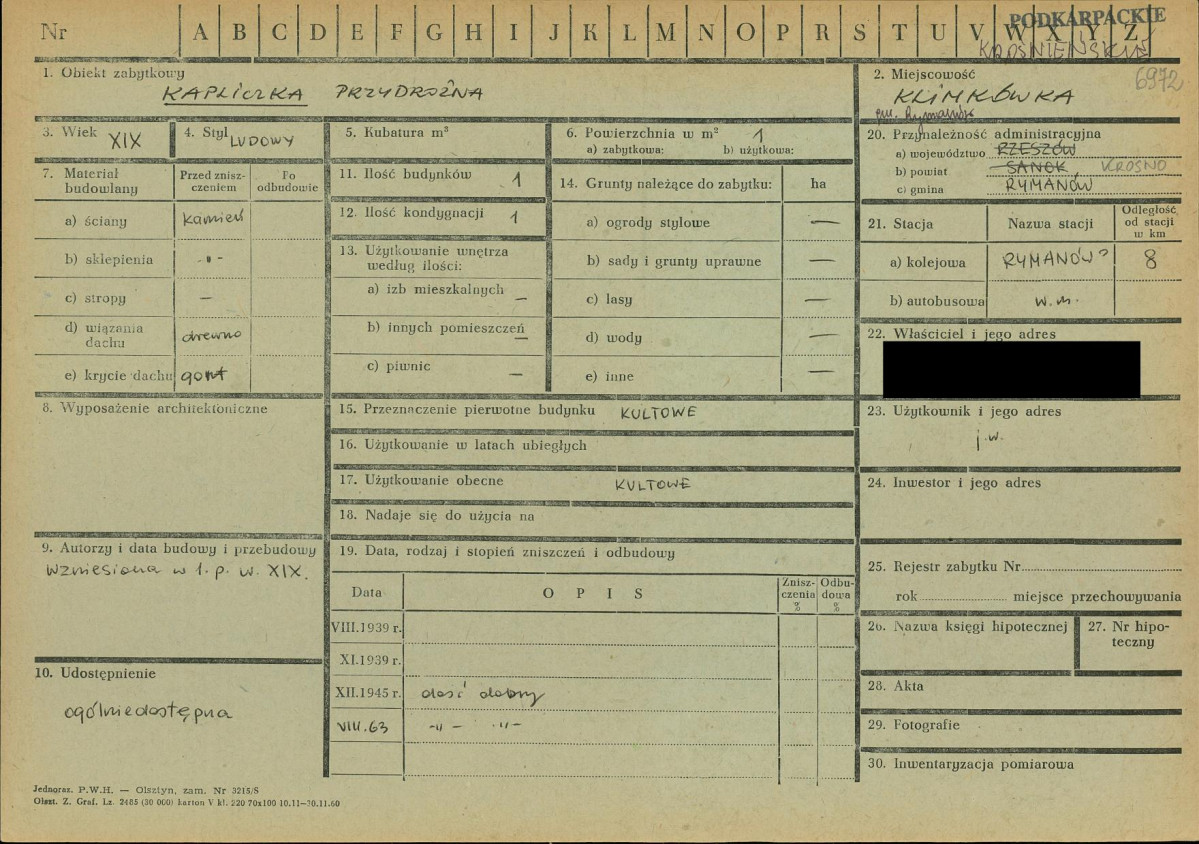 Nr A B C D E F G H I J K L M N O P R S T U V W X Y Z
PODKARPACKIE
KROŚNIEŃSKIE
6972
1. Obiekt zabytkowy
KAPLICZKA PRZYDROŻNA
2. Miejscowość
KLIMKÓWKA
gm. Rymanów
3. Wiek XIX
4. Styl LUDOWY
5. Kubatura m³
6. Powierzchnia w m² 1
a) zabytkowa: b) użytkowa:
7. Materiał budowlany
Przed zniszczeniem
Po odbudowie
a) ściany kamień
b) sklepienia -"-
c) stropy —
d) wiązania dachu drewno
e) krycie dachu gont
8. Wyposażenie architektoniczne
9. Autorzy i data budowy i przebudowy
Wzniesiona w 1. p. w. XIX.
10. Udostępnienie
ogólniedostępna
11. Ilość budynków 1
12. Ilość kondygnacji 1
13. Użytkowanie wnętrza
według ilości:
a) izb mieszkalnych —
b) innych pomieszczeń —
c) piwnic —
14. Grunty należące do zabytku: ha
a) ogrody stylowe —
b) sady i grunty uprawne —
c) lasy —
d) wody —
e) inne —
15. Przeznaczenie pierwotne budynku KULTOWE
16. Użytkowanie w latach ubiegłych
17. Użytkowanie obecne KULTOWE
18. Nadaje się do użycia na
19. Data, rodzaj i stopień zniszczeń i odbudowy
Data O P I S Zniszczenia % Odbudowa %
VIII.1939 r.
XI.1939 r.
XII.1945 r. dość dobry
VIII.63 -"- -"-
20. Przynależność administracyjna
a) województwo RZESZÓW
b) powiat SANOK KROSNO
c) gmina RYMANÓW
21. Stacja Nazwa stacji Odległość od stacji w km
a) kolejowa RYMANÓW 8
b) autobusowa w. m.
22. Właściciel i jego adres
23. Użytkownik i jego adres
j.w.
24. Inwestor i jego adres
25. Rejestr zabytku Nr
rok miejsce przechowywania
26. Nazwa księgi hipotecznej
27. Nr hipoteczny
28. Akta
29. Fotografie
30. Inwentaryzacja pomiarowa
Jednoraz. P.W.H. — Olsztyn, zam. Nr 3215/S
Olszt. Z. Graf. Lz. 2485 (30 000) karton V kl. 220 70x100 10.11-30.11.60